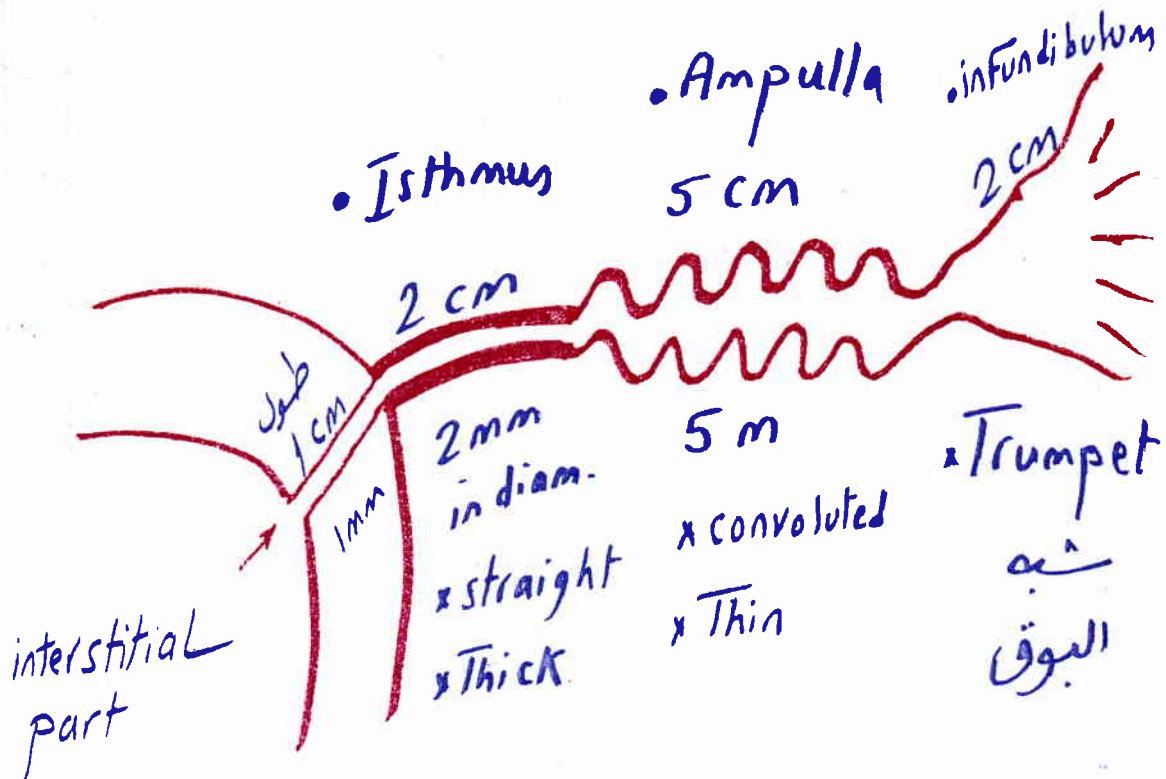 • Ampulla
• infundibulum
• Isthmus
5 cm
2 cm
2 cm
طول
1 cm
1mm
2mm
in diam.
x straight
x Thick
5 m
x convoluted
x Thin
x Trumpet
شبه
البوق
interstitial
part